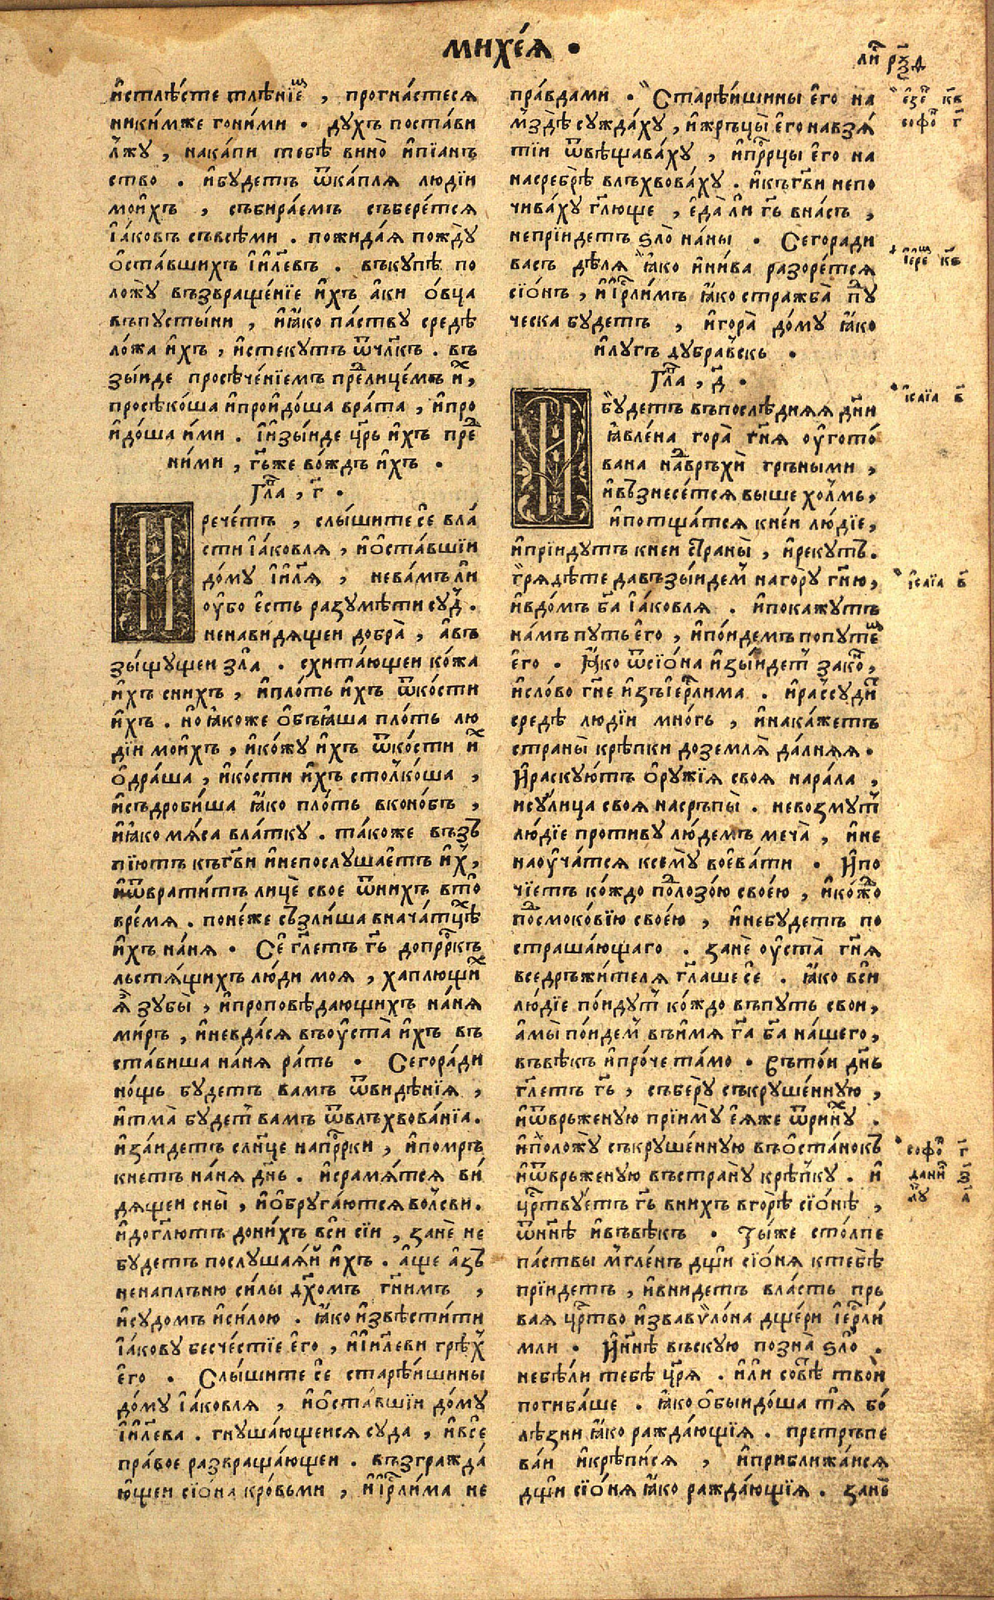 михе́я •
ли҃ рч҃д
и҆стлѣ́сте тлѣнїе , прогна́стеся
никимже гоними • ду́хъ поста́ви
лжу̀ , нака́пи тебѣ вино̀ и҆пїа́нъ
ство . и҆бу́детъ ѿка́пля люді́и
мои́хъ , събира́емъ събере́тся
і҆а́ковъ съвсѣ́ми . пожида́я пожду̀
о҆ста́вшихъ і҆и҃левъ . въку́пѣ по
ложу̀ възвраще́нїе и҆́хъ а҆́ки о҆́вца
въпусты́ни , и҆ꙗ҆́ко па́ству средѣ
ло́жа и҆́хъ , и҆стеку́тъ ѿчл҃къ . въ
зы́иде просѣче́нїемъ пред̾лице́мъ и҆́х ,
просѣко́ша и҆проидо́ша врата̀ , и҆про
идо́ша и҆́ми . и҆и҆зы́иде цр҃ь и҆́хъ пред̾
ни́ми , гь҃же во́ждь и҆́хъ .
Гла , г҃ •
И рече́тъ , слы́шите сѐ вла́
сти і҆а́ковля , и҆о҆ста́вшїи
до́му і҆и҃ля , нева́мъ ли
ᲂу҆́бо е҆́сть разумѣ́ти су́д .
ненави́дящеи добра̀ , а҆въ
зы́щущеи зла̀ . схита́ющеи ко́жа
и҆́хъ сни́хъ , и҆пло́ть и҆́хъ ѿко́сти
и҆́хъ . и҆́о ꙗ҆́коже о҆бъꙗ҆́ша пло́ть лю
ді́и мои́хъ , и҆ко́жу и҆́хъ ѿко́сти и҆́х
о҆дра́ша , и҆ко́сти и҆́хъ столко́ша ,
и҆съдроби́ша ꙗ҆́ко пло́ть вконо́бъ ,
и҆ꙗ҆́ко мяса вла́тку . та́коже възъ
пію́тъ къгв҃и и҆непослу́шаетъ и҆́х ,
и҆ѿврати́тъ лицѐ свое ѿни́хъ вто̀
вре́мя . поне́же съзли́ша внача́тцѣ
и҆́хъ на́ня • Сѐ гл҃етъ гь҃ допрр҃къ
льстя́щихъ лю́ди моя̀ , хаплю́щих
ꙗ҆̀ зубы̀ , и҆проповѣ́дающихъ на́ня
ми́ръ , и҆невда́ся въᲂу҆ста̀ и҆́хъ въ
ста́виша на́ня ра́ть • Сего́ради
но́щь бу́детъ ва́мъ ѿвидѣ́нїя ,
и҆тма̀ бу́дет ва́мъ ѿвлъхвова́нїа .
и҆за́идетъ сл҃нце напрр҃ки , и҆помръ
кнетъ на́ня дн҃ь . и҆срамя́тся ви́
дящеи сны̀ , и҆о҆бруга́ются волсви .
и҆догл҃ютъ дони́хъ вси сі́и , занѐ не
бу́детъ послуша́яи и҆́хъ . а҆́ще а҆́зъ
ненаплъню си́лы дх҃омъ гн҃имъ ,
и҆судо́мъ и҆си́лою . ꙗ҆́ко и҆звѣсти́ти
і҆а́кову бесче́стїе е҆го̀ , и҆і҆и҃леви грѣх
е҆го̀ • Слы́шите сѐ старѣ́ишины
до́му і҆а́ковля , и҆о҆ста́вшїи до́му
і҆и҃лева . гнуша́ющеися суда̀ , и҆всѐ
пра́вое развраща́ющеи . възгражда́
ющеи сїо́на кро́вьми , и҆і҆ерл҃има не
пра́вдами • Старѣ́ишины е҆го̀ на
мздѣ̀ сужда́ху , и҆жръцы̀ е҆го̀ навзя́
тіи ѿвѣщава́ху , и҆прр҃цы е҆го̀ на
насребрѣ̀ влъхвова́ху . и҆къгв҃и непо
чива́ху гл҃юще , е҆да̀ ли гь҃ вна́съ ,
непрїи́детъ ѕло̀ на́ны • Сегоради
ва́съ дѣля̀ ꙗ҆́ко и҆ни́ва разоре́тся
сїо́нъ , и҆і҆ерл҃имъ ꙗ҆́ко стражба̀ пу
ческа бу́детъ , и҆гора̀ до́му ꙗ҆́ко
и҆лу́гъ дубра́вскъ .
Гла , д҃ •
И бу́детъ въпослѣ́дняя дн҃и
ꙗ҆вле́на гора̀ гн҃я ᲂу҆гото́
вана навръхи̂ го́рными ,
и҆възнесе́тся вы́ше хо́лмъ ,
и҆потща́тся кне́и лю́дїе ,
и҆прїи́дутъ кнеи страны̀ , и҆реку́тъ .
грядѣ́те давъзы́идем наго́ру гн҃ю ,
и҆вдо́мъ бг҃а і҆а́ковля . и҆пока́жутъ
на́мъ пу́ть е҆го̀ , и҆по́идемъ попуте́м
е҆го̀ . ꙗ҆́ко ѿсїо́на и҆зы́идет зако́н ,
и҆сло́во гн҃е и҆зъі҆ерл҃има . и҆рассу́дит
средѣ̀ люді́и мно́гъ , и҆нака́жетъ
страны̀ крѣ́пки доземля̀ да́лняя .
И҆раскую́тъ о҆ру́жїя своя̀ нара́ла ,
и҆сули́ца своя̀ насръпы̀ . невозму́т
лю́дїе проти́ву лю́демъ меча̀ , и҆не
наᲂу҆ча́тся ксему̀ воева́ти • И҆по
чі́етъ ко́ждо подлозо́ю свое́ю , и҆ко́ждо
подсмоко́вїю свое́ю , и҆небу́детъ по
страша́ющаго . занѐ ᲂу҆ста̀ гн҃я
вседръжи́теля гл҃аше сѐ . ꙗ҆́ко вси
лю́дїе по́идут ко́ждо въпу́ть сво́и ,
а҆мы̀ по́идем въи҆́мя гд҃а бг҃а на́шего ,
въвѣ́къ и҆про́че та́мо • Въто́и дн҃ь
гл҃етъ гь҃ , съберу̀ съкруше́нную ,
и҆ѿврьже́ную прїиму̀ е҆я́же ѿри́нух .
и҆положу̀ съкруше́нную въо҆ста́нокъ
и҆ѿврьже́ную въстра́ну крѣ́пку . и҆
црь҃ствуетъ гь҃ вни́хъ вгорѣ̀ сїо́нѣ ,
ѿнн҃ѣ и҆въвѣ́къ • Ты́же сто́лпе
па́ствы мгле́нъ дщи сїо́ня ктебѣ̀
прїи́детъ , и҆вни́детъ вла́сть пръ
вая црь҃ство и҆звавѷло́на дще́ри і҆ерл҃и
мли • И҆нн҃ѣ въску́ю позна̀ ѕло̀ .
небѣ́ли тебѣ̀ цр҃я . и҆́ли совѣ́т тво́и
погиба́ше . ꙗ҆́ко о҆быидо́ша тя̀ бо
лѣ́зни ꙗ҆́ко ражда́ющїя . претръпе
ва́и и҆крѣпи́ся , и҆приближа́ися
дщи сїо́ня ꙗ҆́ко ражда́ющїя . занѐ
е҆зе к҃в
софо г҃
і҆ере к҃ѕ
и҆са́їа в҃
и҆са́їа в҃
софо г҃
дани з҃
лу а҃